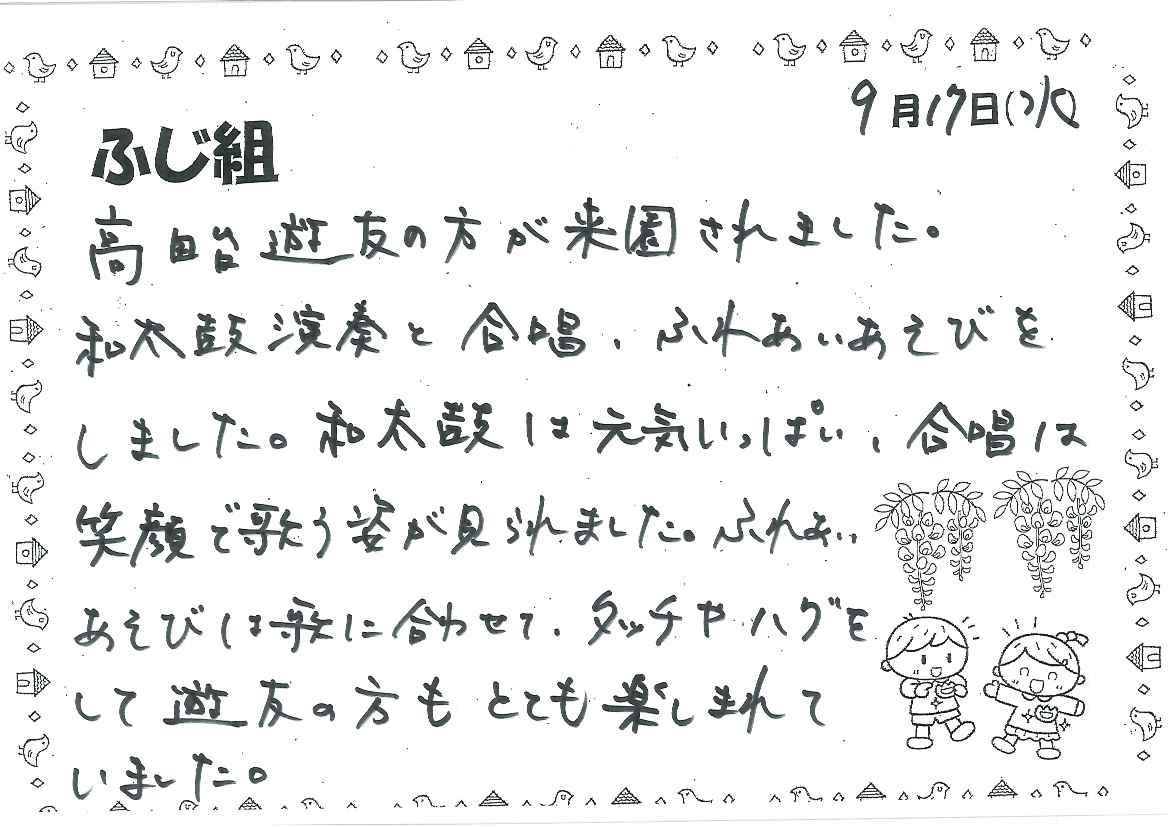 9月17日(水)
ふじ組
高台遊友の方が来園されました。
和太鼓演奏と合唱、ふれあいあそびを
しました。和太鼓は元気いっぱい、合唱は
笑顔で歌う姿が見られました。ふれあい
あそびは歌に合わせて、タッチやハグを
して遊友の方もとても楽しまれて
いました。